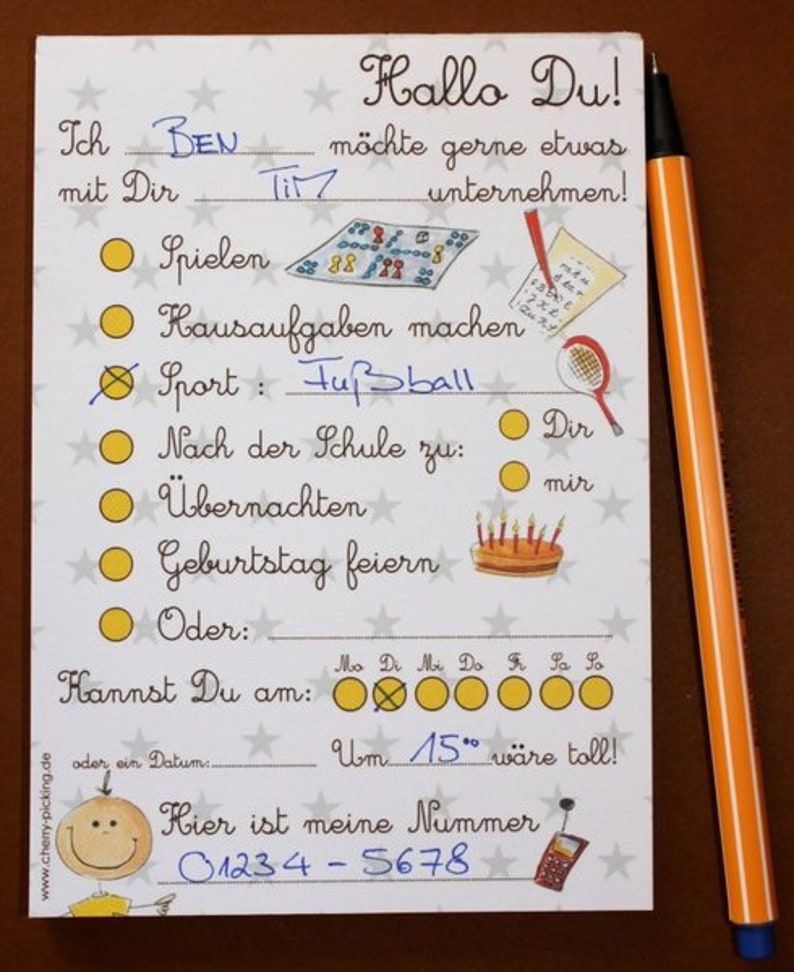 Hallo Du!
Ich BEN möchte gerne etwas
mit Dir TiM unternehmen!
Spielen
Hausaufgaben machen
Sport : Fußball
Nach der Schule zu: Dir
mir
Übernachten
Geburtstag feiern
Oder:
Mo Di Mi Do Fr Sa So
Kannst Du am:
oder ein Datum: Um 15⁰⁰ wäre toll!
Hier ist meine Nummer
01234 - 5678
www.cherry-picking.de